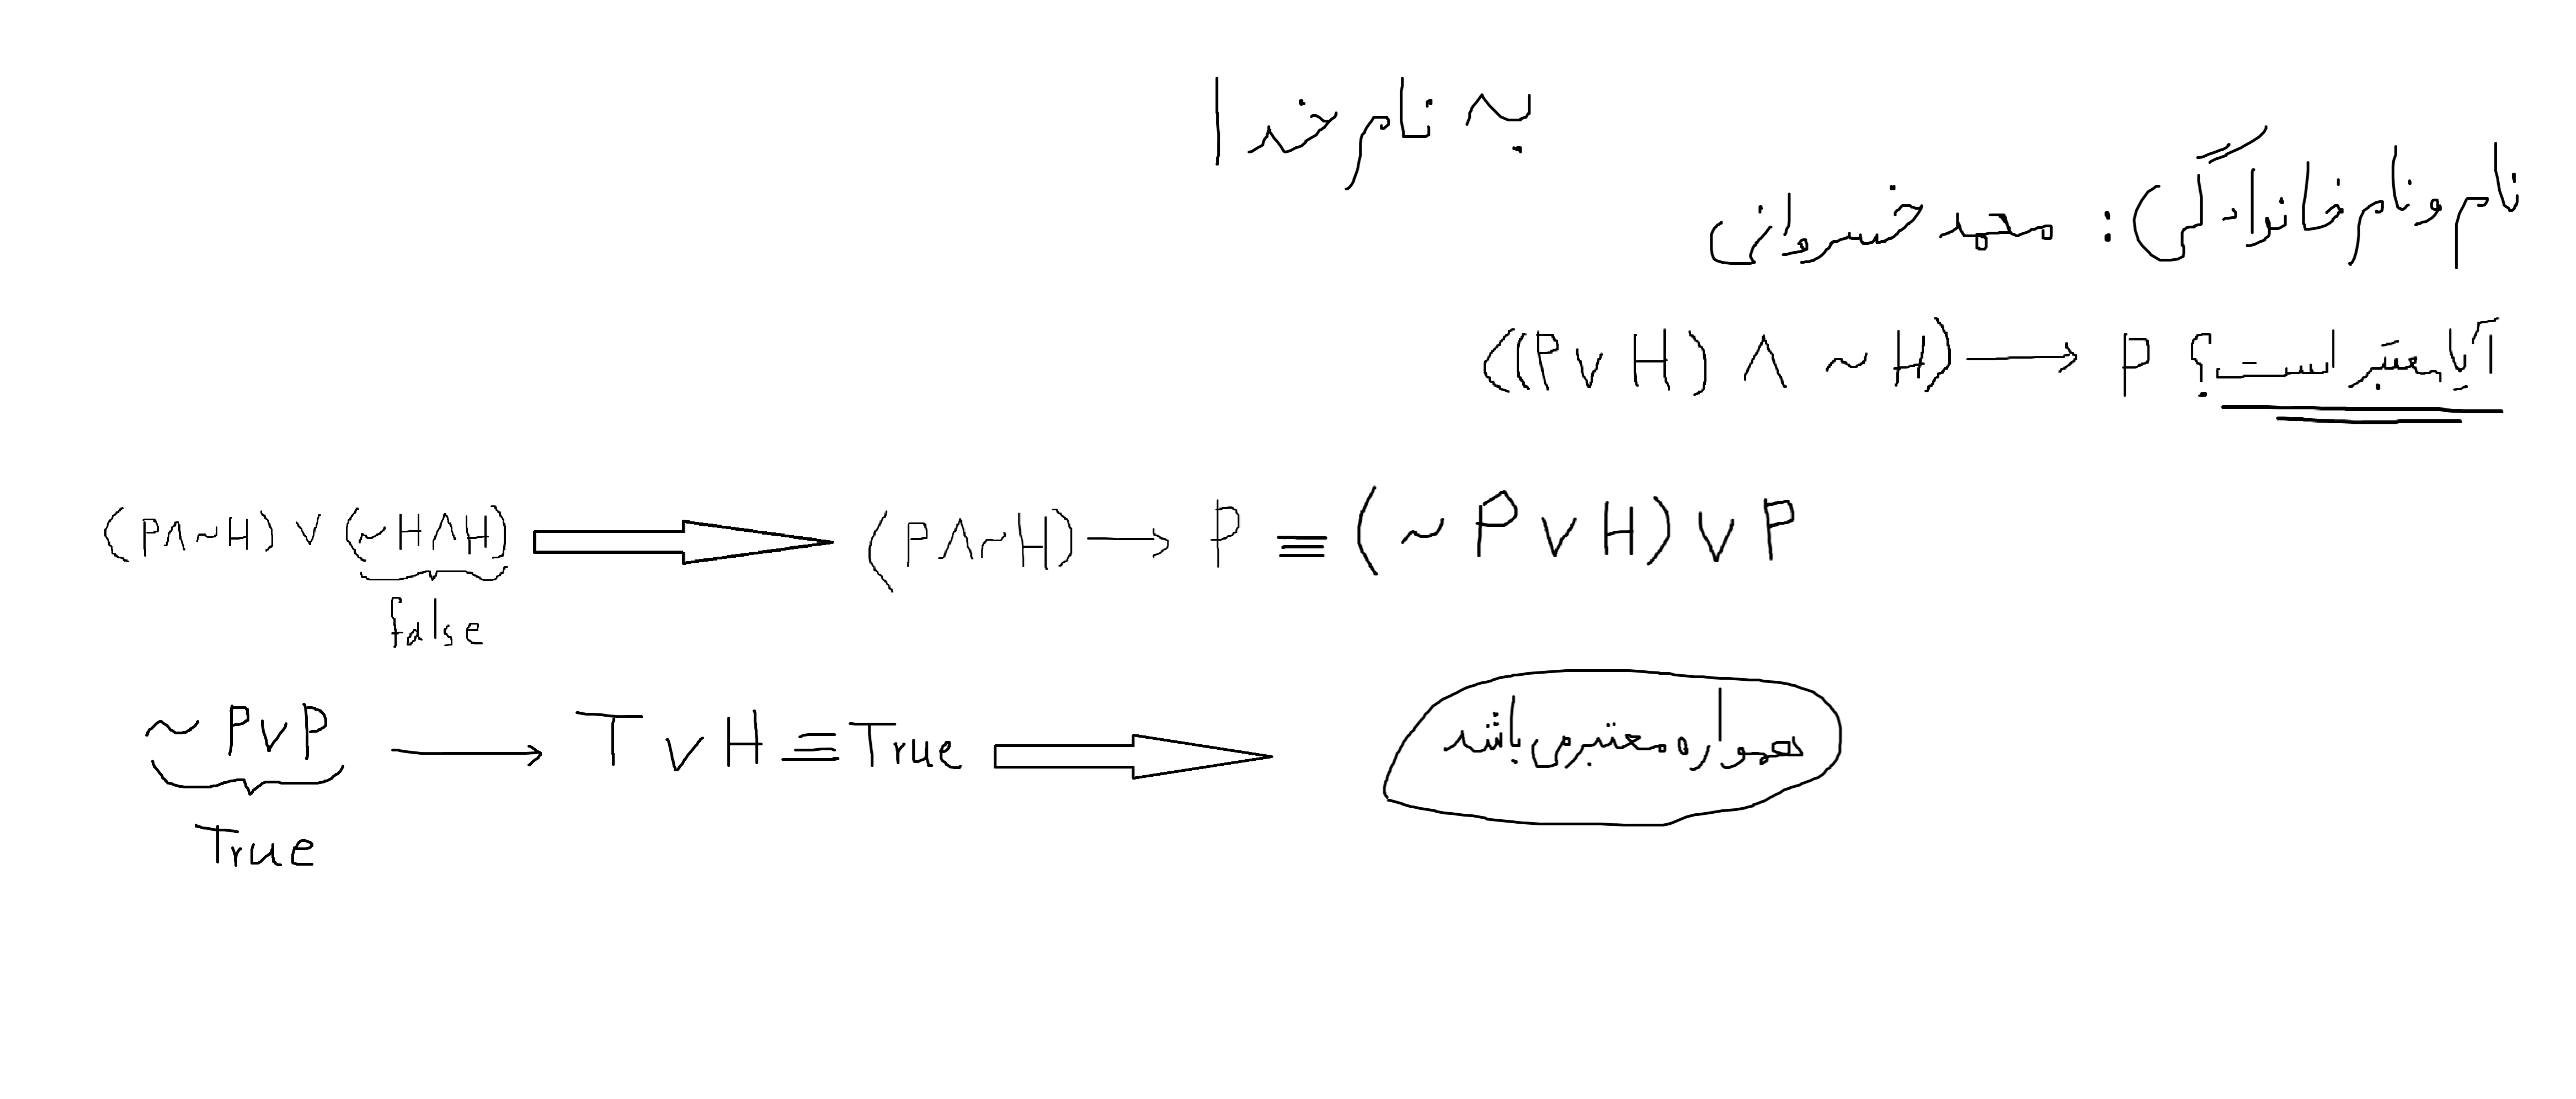 به نام خدا
نام و نام خانوادگی : محمد خسروانی
آیا معتبر است؟ ((P∨H) ∧ ~H) → P
(P∧~H) ∨ (~H∧H) ⇒ (P∧~H) → P ≡ (~P∨H)∨P
false
~P∨P → T∨H ≡ True ⇒ همواره معتبر می باشد
True